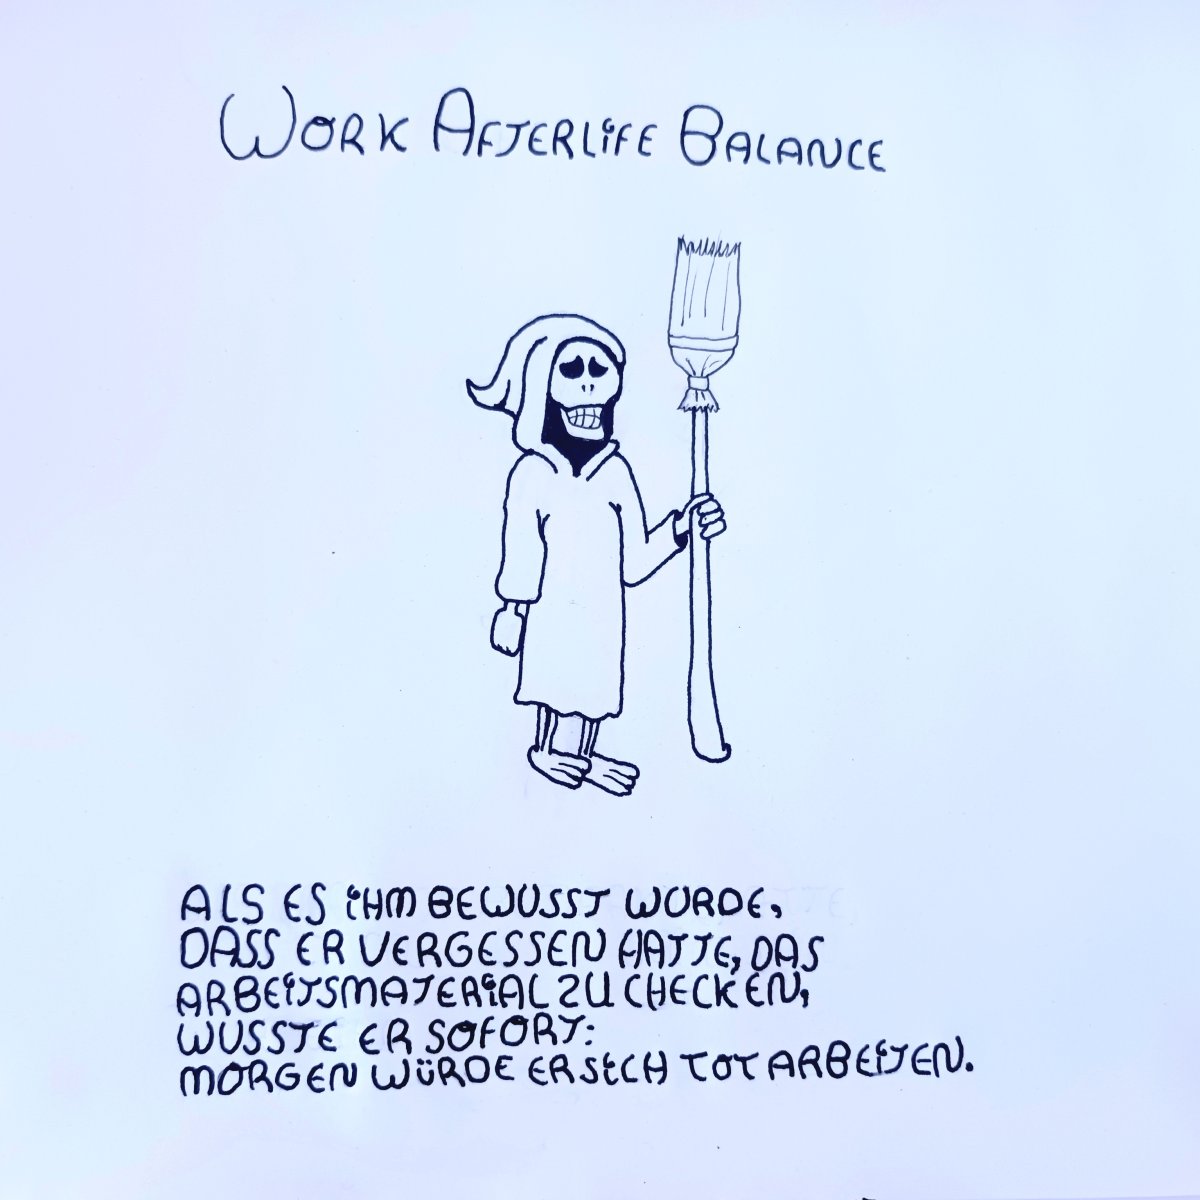 Work Afterlife Balance
Als es ihm bewusst wurde,
dass er vergessen hatte, das
Arbeitsmaterial zu checken,
wusste er sofort:
Morgen würde er sich tot arbeiten.